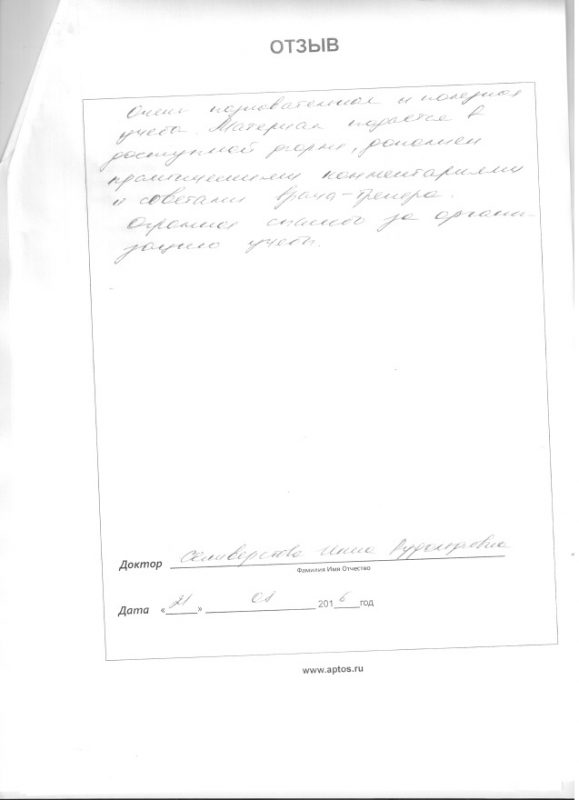 ОТЗЫВ
Очень познавательная и полезная
учеба. Материал подается в
доступной форме, дополнен
практическими комментариями
и советами врача-тренера.
Огромное спасибо за органи-
зацию учебы.
Доктор Селиверстова Инна
Фамилия Имя Отчество
Дата «21» 01 2016 год
www.aptos.ru